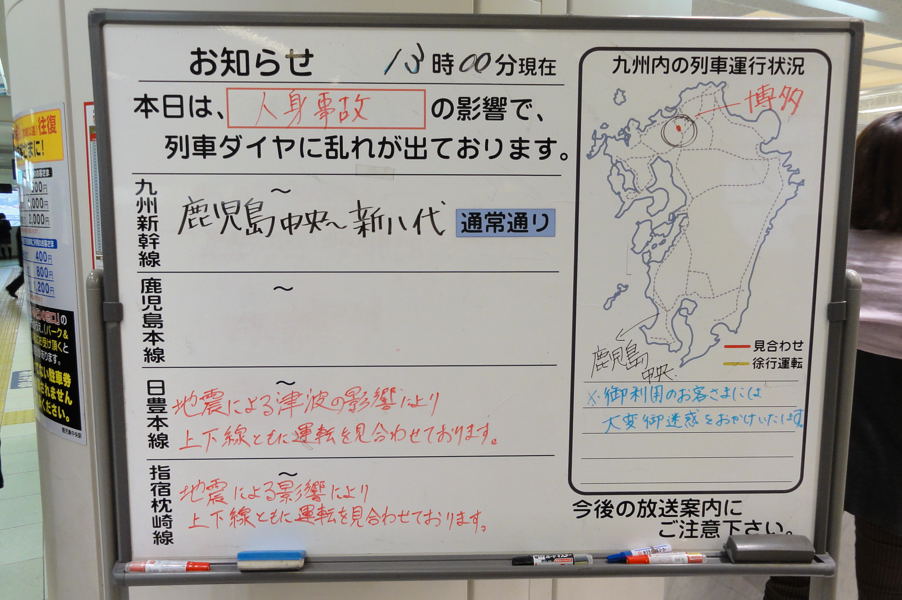 お知らせ 13時00分現在
本日は、人身事故の影響で、
列車ダイヤに乱れが出ております。
九州新幹線
～
鹿児島中央～新八代 通常通り
鹿児島本線
～
日豊本線
～
地震による津波の影響により
上下線ともに運転を見合わせております。
指宿枕崎線
～
地震による影響により
上下線ともに運転を見合わせております。
九州内の列車運行状況
博多
鹿児島
中央
見合わせ
徐行運転
※御利用のお客さまには
大変御迷惑をおかけいたします。
今後の放送案内に
ご注意下さい。
往復
400円
800円
1,200円